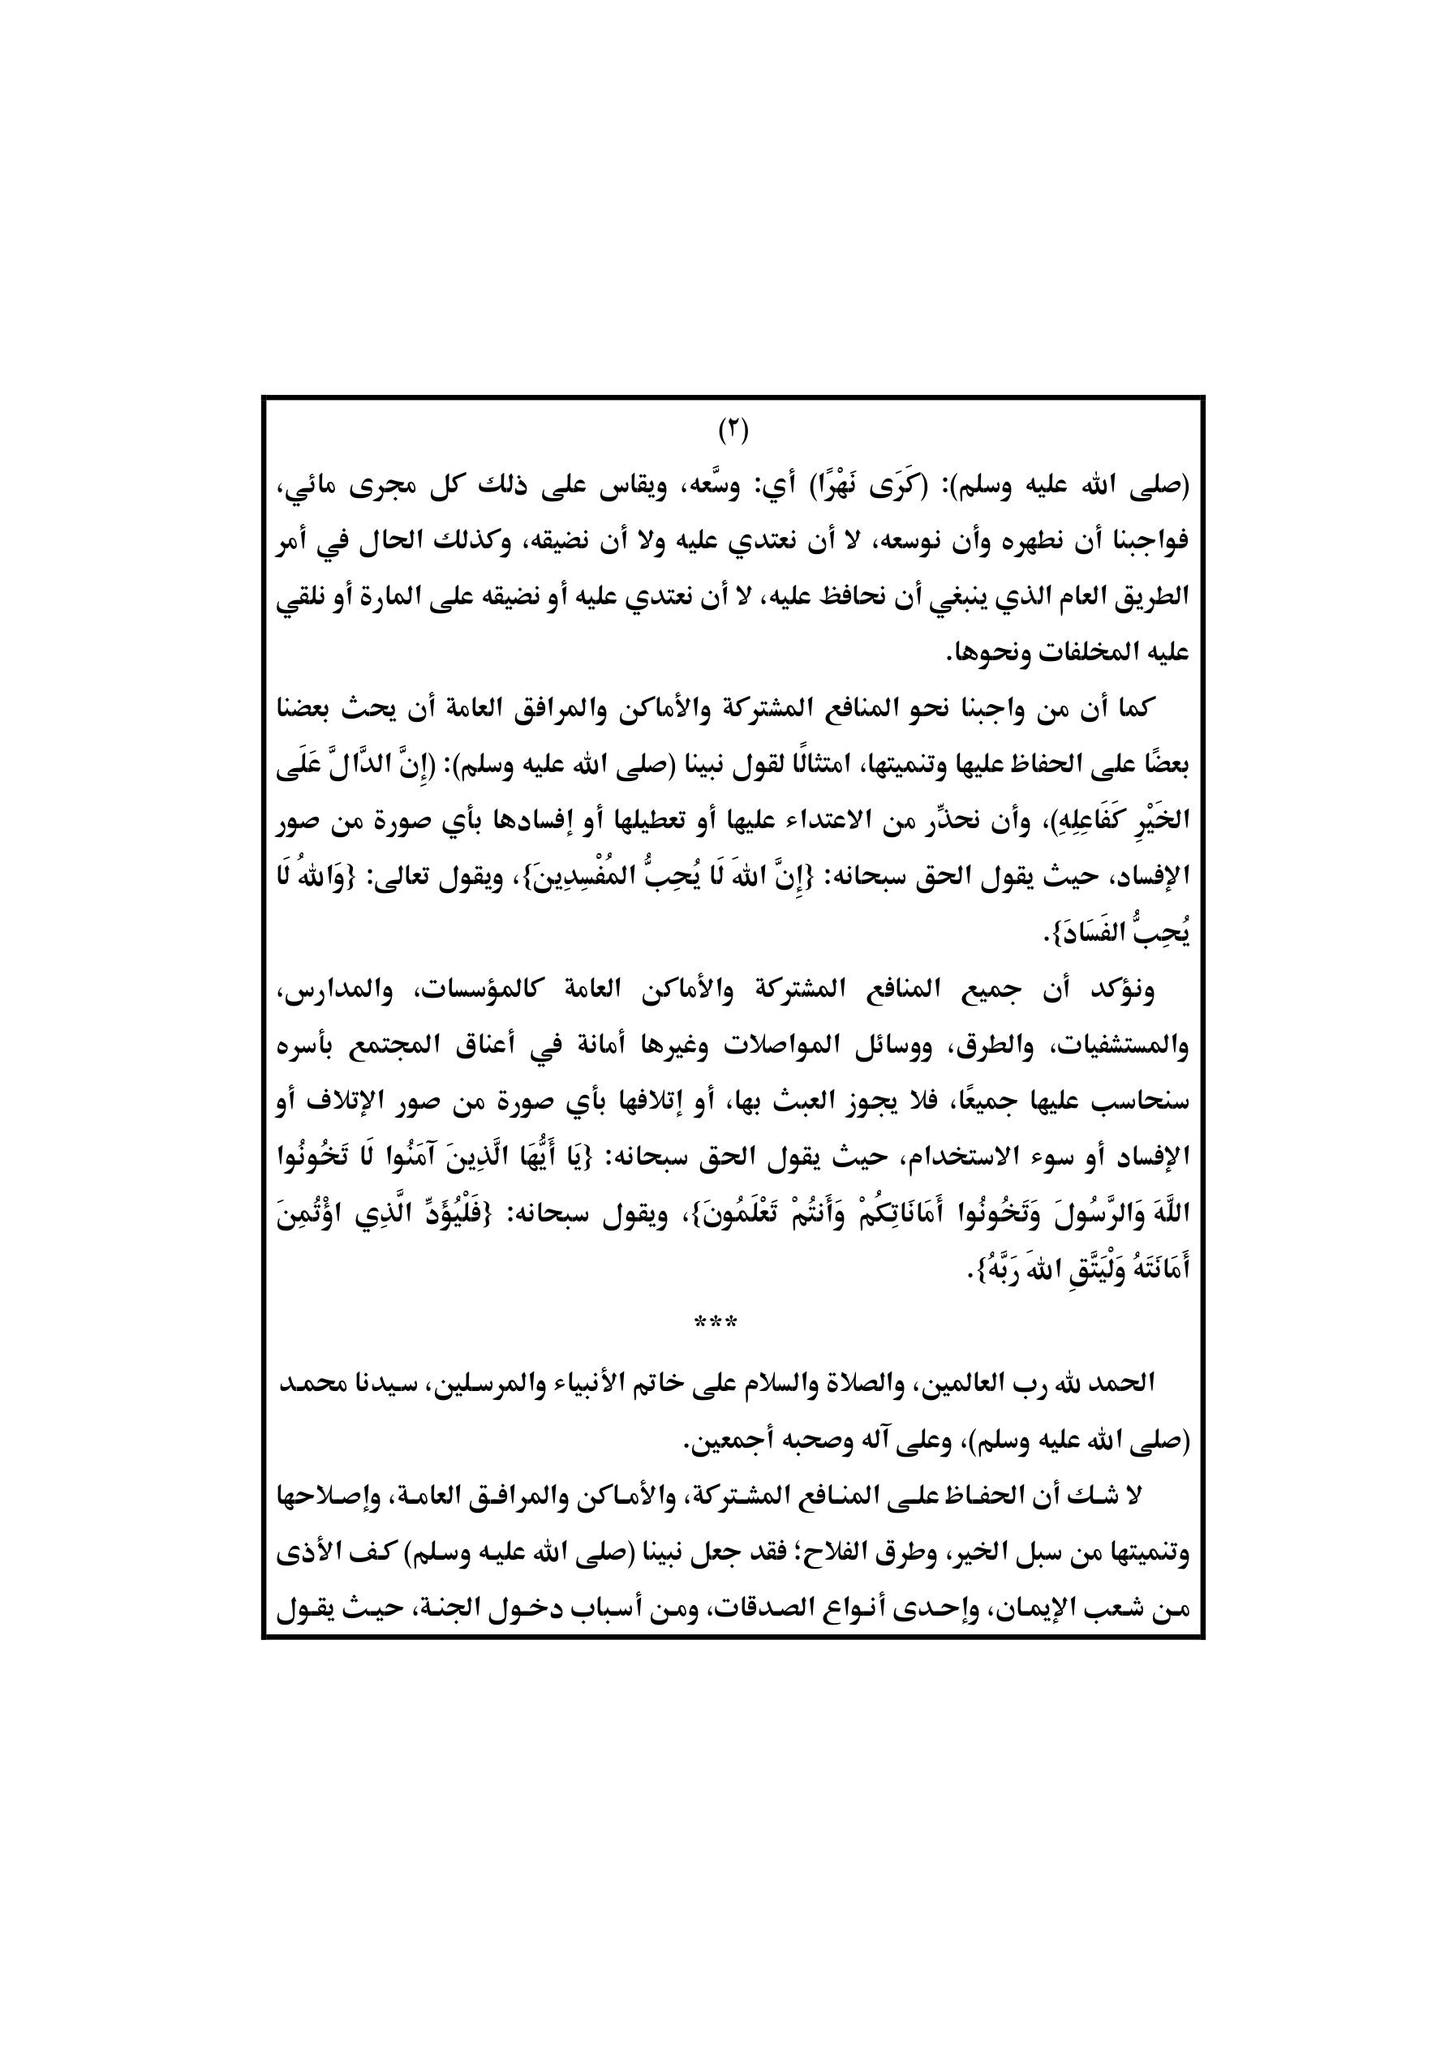 (٢)
(صلى الله عليه وسلم): (كَرَى نَهْرًا) أي: وسَّعه، ويقاس على ذلك كل مجرى مائي،
فواجبنا أن نطهره وأن نوسعه، لا أن نعتدي عليه ولا أن نضيقه، وكذلك الحال في أمر
الطريق العام الذي ينبغي أن نحافظ عليه، لا أن نعتدي عليه أو نضيقه على المارة أو نلقي
عليه المخلفات ونحوها.
كما أن من واجبنا نحو المنافع المشتركة والأماكن والمرافق العامة أن يحث بعضنا
بعضًا على الحفاظ عليها وتنميتها، امتثالًا لقول نبينا (صلى الله عليه وسلم): (إِنَّ الدَّالَّ عَلَى
الخَيْرِ كَفَاعِلِهِ)، وأن نحذِّر من الاعتداء عليها أو تعطيلها أو إفسادها بأي صورة من صور
الإفساد، حيث يقول الحق سبحانه: {إِنَّ اللهَ لَا يُحِبُّ المُفْسِدِينَ}، ويقول تعالى: {وَاللهُ لَا
يُحِبُّ الفَسَادَ}.
ونؤكد أن جميع المنافع المشتركة والأماكن العامة كالمؤسسات، والمدارس،
والمستشفيات، والطرق، ووسائل المواصلات وغيرها أمانة في أعناق المجتمع بأسره
سنحاسب عليها جميعًا، فلا يجوز العبث بها، أو إتلافها بأي صورة من صور الإتلاف أو
الإفساد أو سوء الاستخدام، حيث يقول الحق سبحانه: {يَا أَيُّهَا الَّذِينَ آمَنُوا لَا تَخُونُوا
اللَّهَ وَالرَّسُولَ وَتَخُونُوا أَمَانَاتِكُمْ وَأَنتُمْ تَعْلَمُونَ}، ويقول سبحانه: {فَلْيُؤَدِّ الَّذِي اؤْتُمِنَ
أَمَانَتَهُ وَلْيَتَّقِ اللهَ رَبَّهُ}.
***
الحمد لله رب العالمين، والصلاة والسلام على خاتم الأنبياء والمرسلين، سيدنا محمد
(صلى الله عليه وسلم)، وعلى آله وصحبه أجمعين.
لا شك أن الحفاظ على المنافع المشتركة، والأماكن والمرافق العامة، وإصلاحها
وتنميتها من سبل الخير، وطرق الفلاح؛ فقد جعل نبينا (صلى الله عليه وسلم) كف الأذى
من شعب الإيمان، وإحدى أنواع الصدقات، ومن أسباب دخول الجنة، حيث يقول